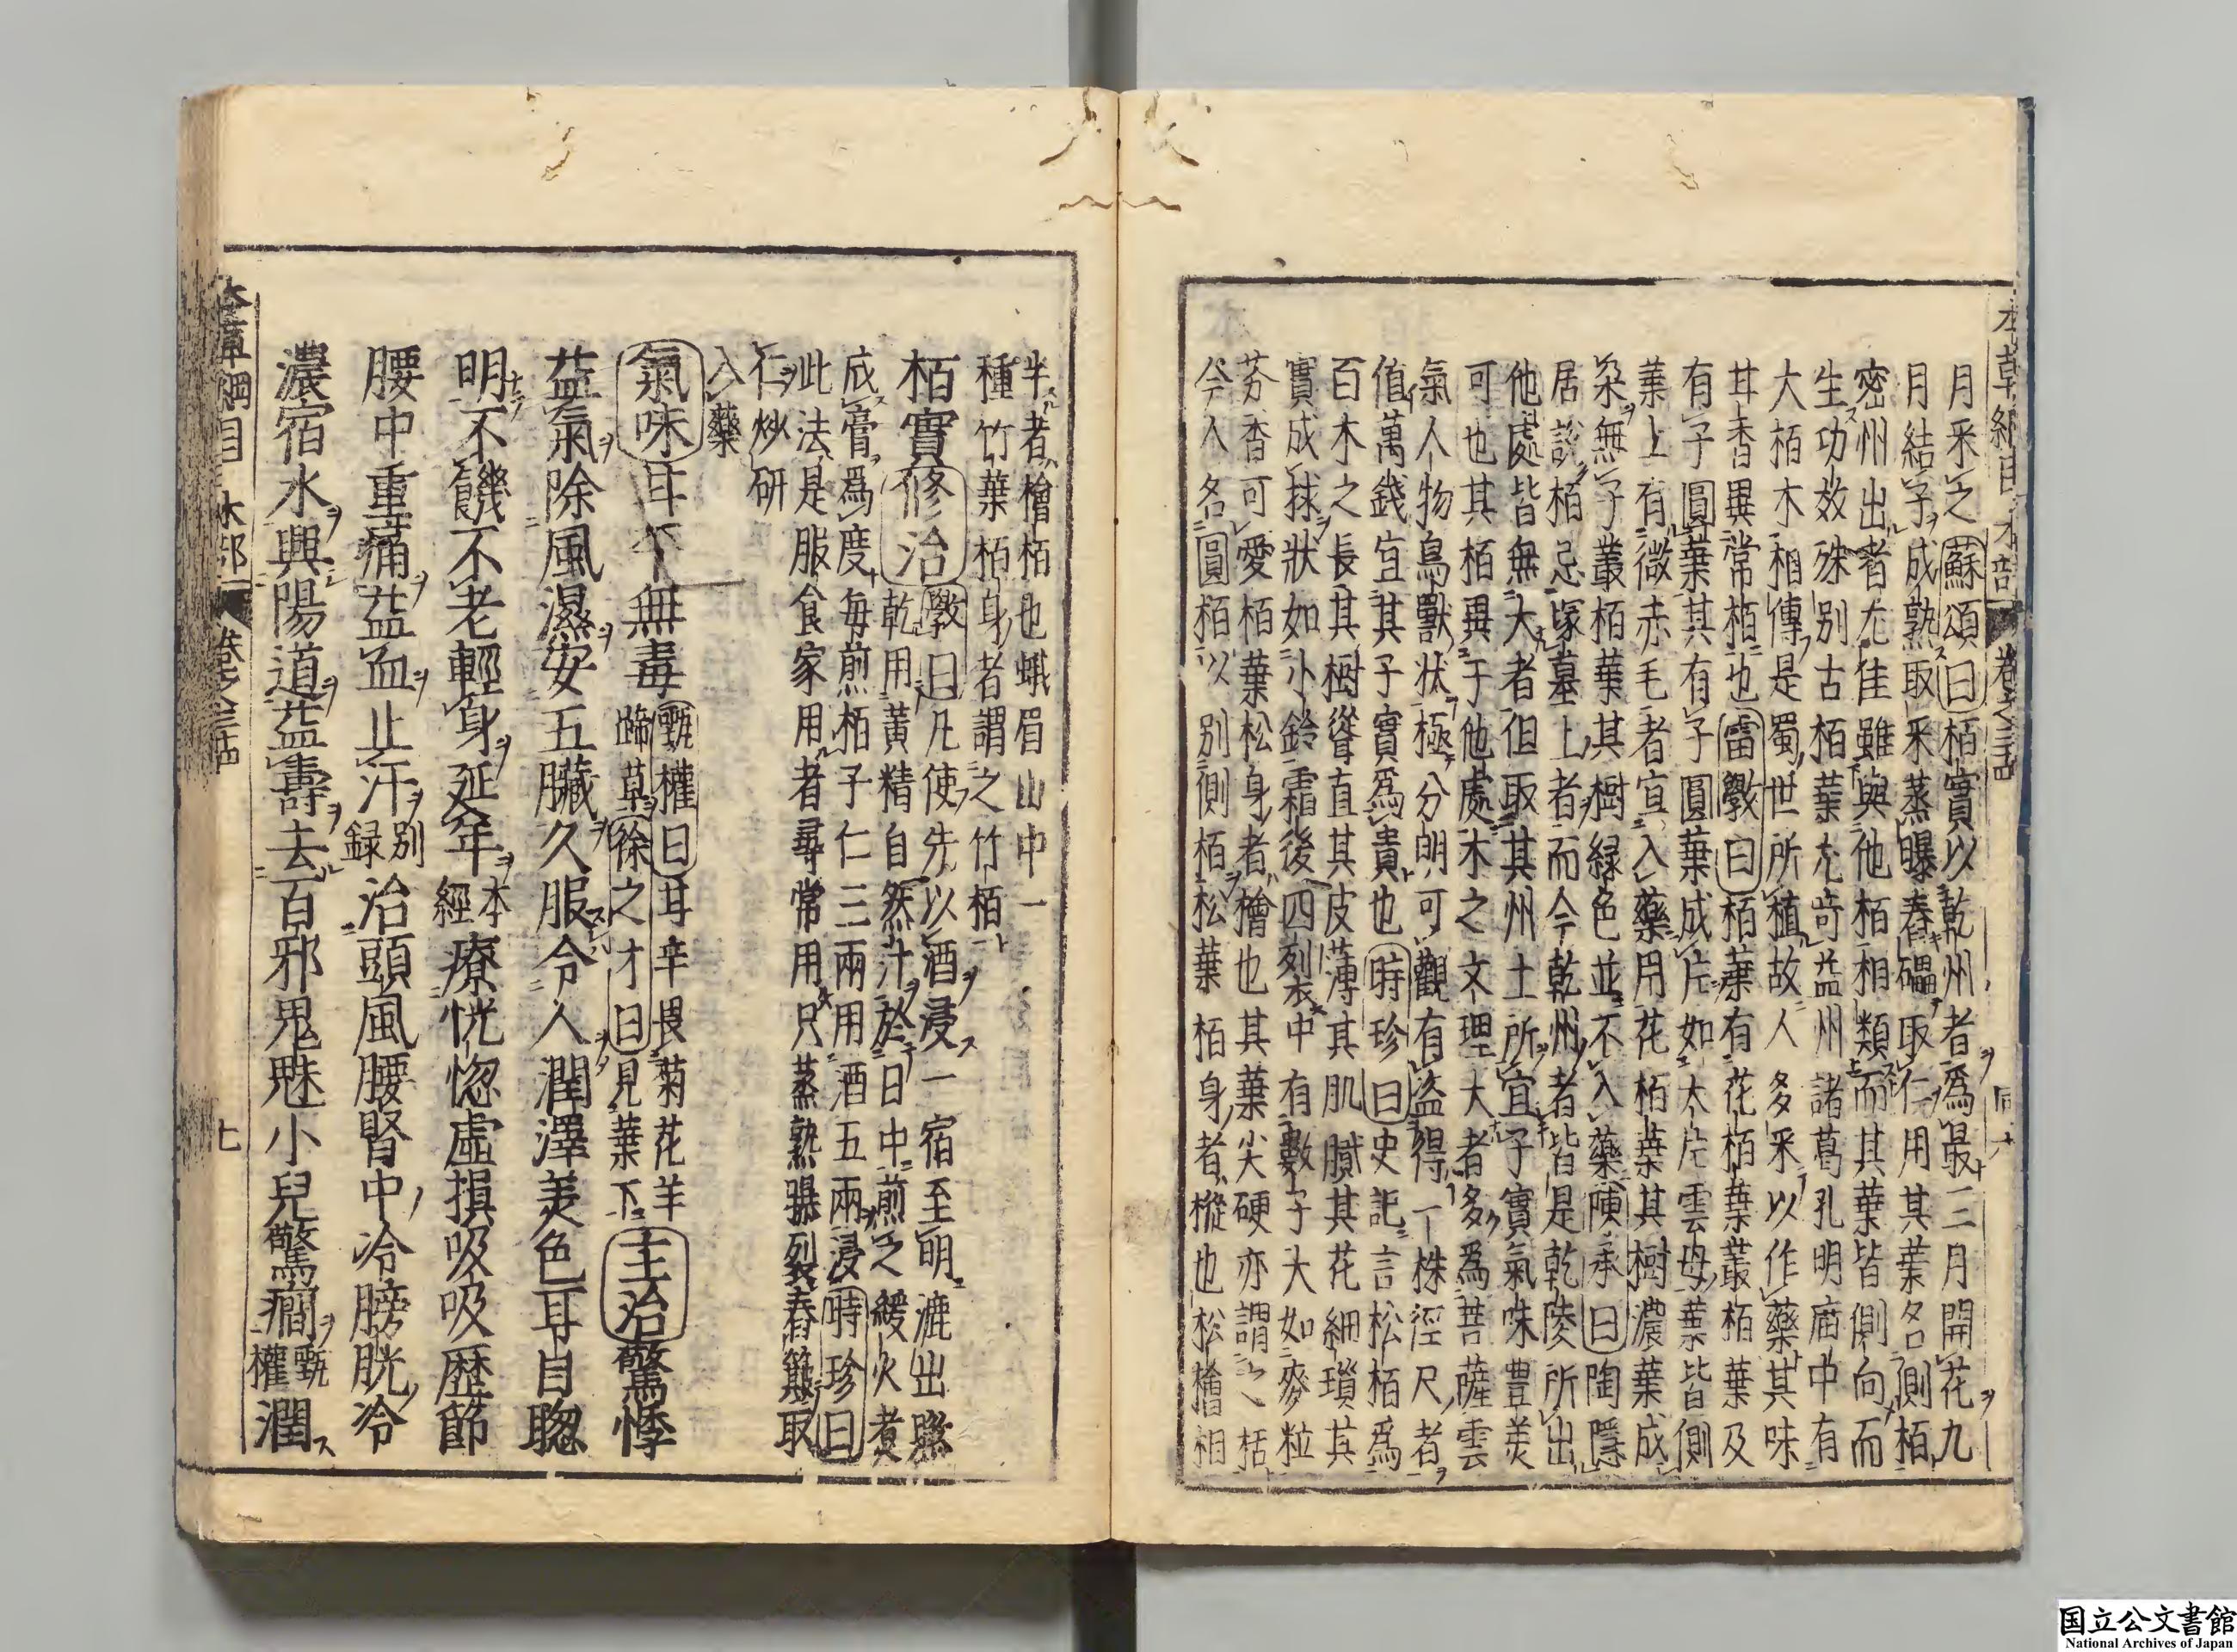 月采之蘇頌曰栢實以乾州者爲最三月開花九
月結子成熟取采蒸曝舂礧取仁用其葉名側栢
密州出者尤佳雖與他栢相類而其葉皆側向而
生功效殊別古栢葉尤竒益州諸葛孔明庿中有
大栢木相傳是蜀世所植故人多采以作藥其味
甘香異常栢也雷斅曰栢葉有花栢葉叢栢葉及
有子圓葉其有子圓葉成片如大片雲母葉皆側
葉上有微赤毛者宜入藥用花栢葉其樹濃葉成
朶無子叢栢葉其樹緑色並不入藥陳承曰陶隱
居說栢忌塚墓上者而今乾州者皆是乾陵所出
他處皆無大者但取其州土所宜子實氣味豊美
可也其栢異于他處木之文理大者多爲菩薩雲
氣人物鳥獸狀極分明可觀有盗得一株徑尺者
值萬錢宜其子實爲貴也時珍曰史記言松栢爲
百木之長其樹聳直其皮薄其肌膩其花細瑣其
實成捄狀如小鈴霜後四裂中有數子大如麥粒
芬香可愛栢葉松身者檜也其葉尖硬亦謂之栝
今人名圓栢以別側栢松葉栢身者樅也松檜相
半者檜栢也蛾眉山中一
種竹葉栢身者謂之竹栢
栢實修治斅曰凡使先以酒浸一宿至明漉出㬠
乾用黃精自然汁於日中煎之緩火煮
成膏爲度每煎栢子仁三兩用酒五兩浸時珍曰
此法是服食家用者尋常用只蒸熟曝裂舂簸取
仁炒研
入藥
氣味甘平無毒甄權曰甘辛畏菊花羊
蹄草徐之才曰見葉下主治驚悸
益氣除風濕安五臟久服令人潤澤美色耳目聦
明不饑不老輕身延年本經療恍惚虛損吸吸歷節
腰中重痛益血止汗別録治頭風腰腎中冷膀胱冷
濃宿水興陽道益壽去百邪鬼魅小兒驚癇甄權潤
本草綱目 木部 卷之三十四 七
国立公文書館
National Archives of Japan